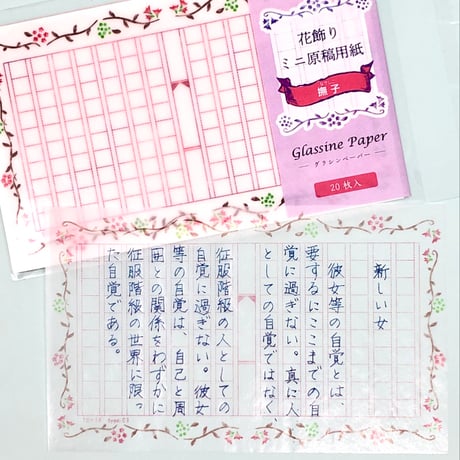 花飾り
ミニ原稿用紙
撫子
Glassine Paper
グラシンペーパー
20枚入
新しい女
彼女等の自覚とは、
要するにここまでの自
覚に過ぎない。真に人
としての自覚ではなく
征服階級の人としての
自覚に過ぎない。彼女
等の自覚は、自己と周
囲との関係をわずかに
征服階級の世界に限っ
た自覚である。